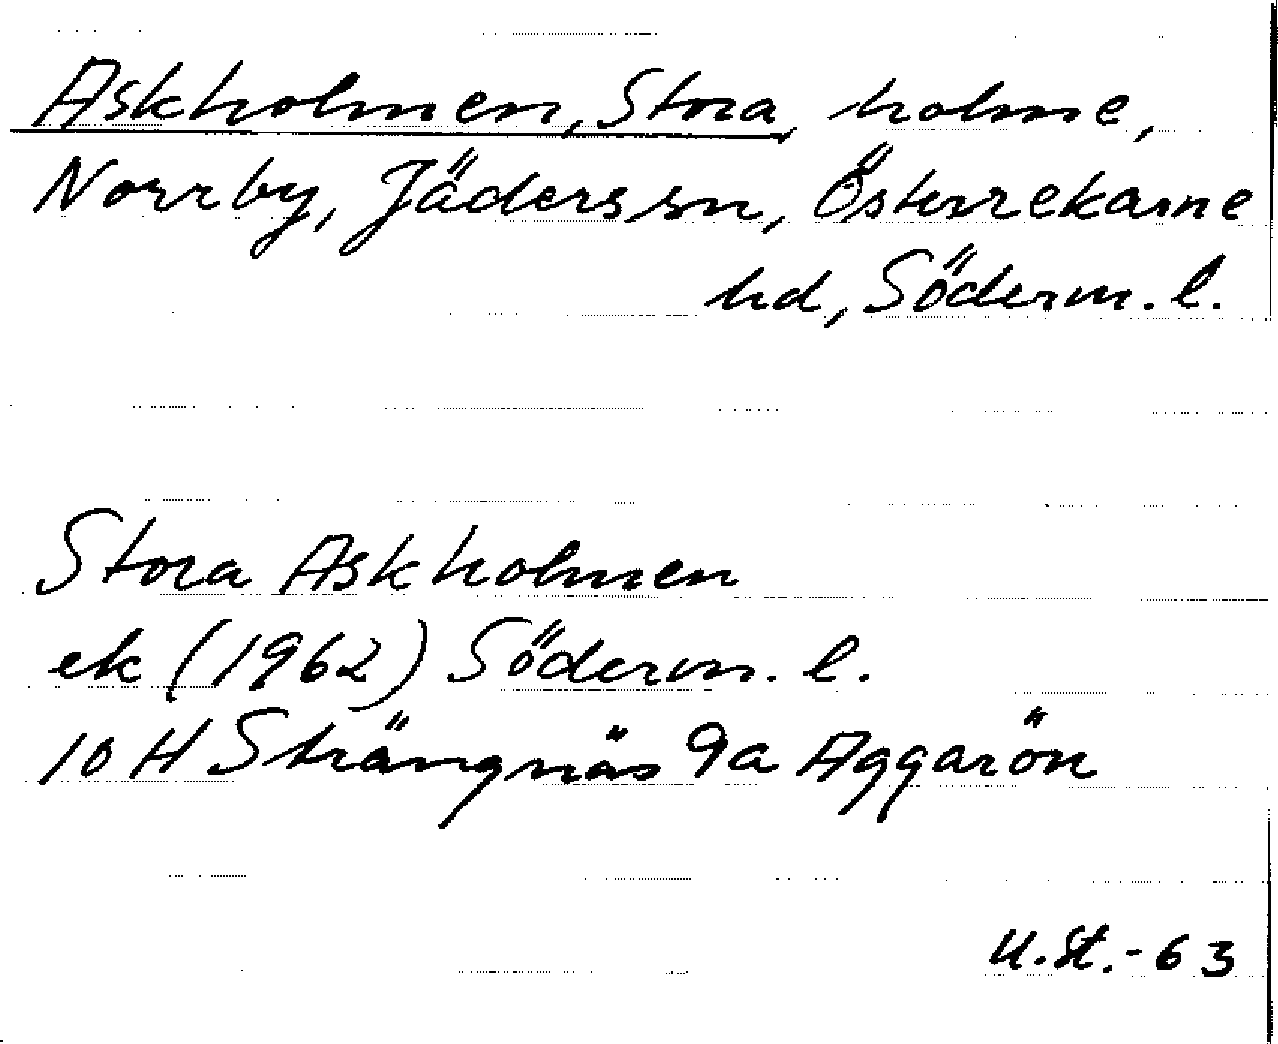 Askholmen, Stora, holme,
Norrby, Jäders sn, Österrekarne
hd, Söderm. l.
Stora Askholmen
ek (1962) Söderm. l.
10 H Strängnäs 9a Aggarön
U.St.-63